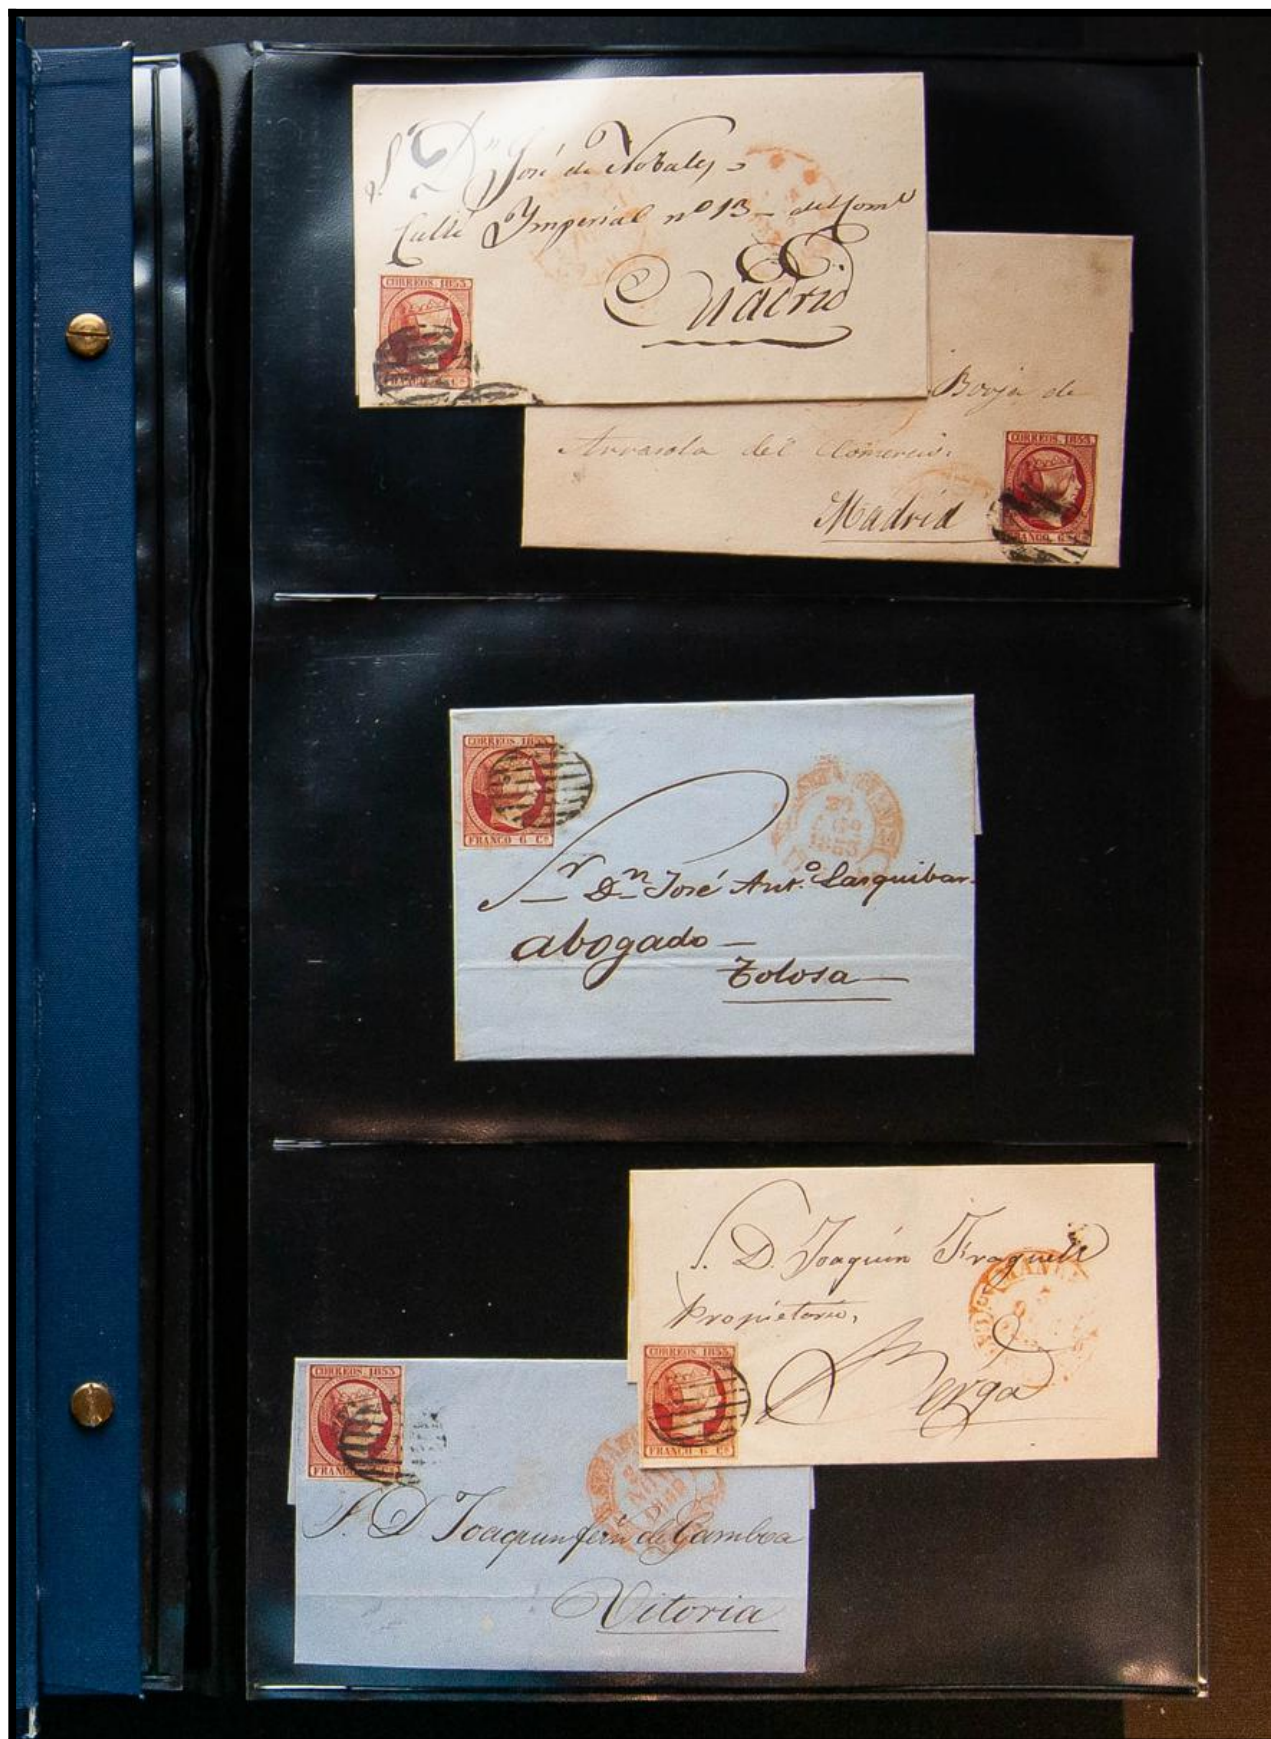 S. Dn José de Nobales
Calle Ymperial nº 13 - del Com.º
Madrid
CORREOS. 1853.
FRANCO. 6 Cs
Borja de
Arrasola del Comercio.
Madrid
CORREOS. 1853.
FRANCO. 6 Cs
CORREOS 1853
FRANCO 6 Cs
1853
Sr Dn José Ant.º Larquibar
abogado -
Tolosa
S. D. Joaquin Fraguell
Propietario,
Berga
CORREOS. 1853.
FRANCO 6 Cs
CORREOS. 1853
FRANCO 6 Cs
S. D Joaquin fern de Gamboa
Vitoria